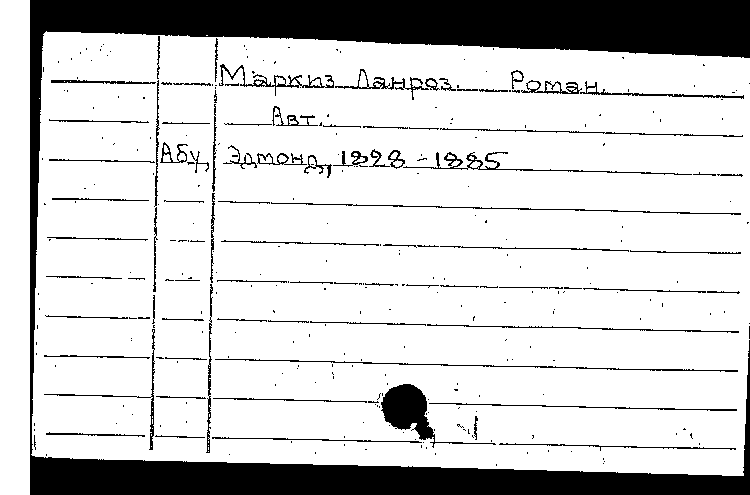 Маркиз Ланроз. Роман.
Авт.:
Абу, Эдмонд, 1828-1885